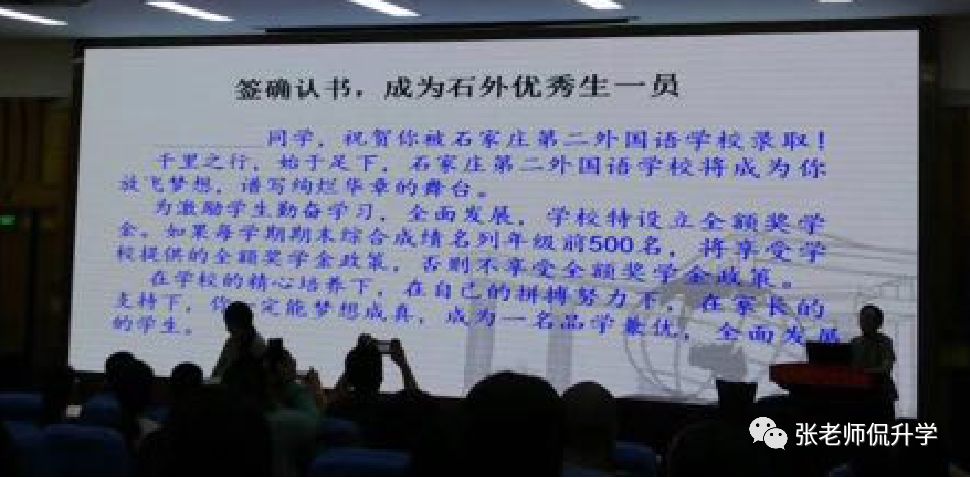 签确认书，成为石外优秀生一员
同学，祝贺你被石家庄第二外国语学校录取！
千里之行，始于足下，石家庄第二外国语学校将成为你
放飞梦想，谱写绚烂华章的舞台。
为激励学生勤奋学习，全面发展，学校特设立全额奖学
金。如果每学期期末综合成绩名列年级前500名，将享受学
校提供的全额奖学金政策，否则不享受全额奖学金政策。
在学校的精心培养下，在自己的拼搏努力下，在家长的
支持下，你一定能梦想成真，成为一名品学兼优，全面发展
的学生。
张老师侃升学